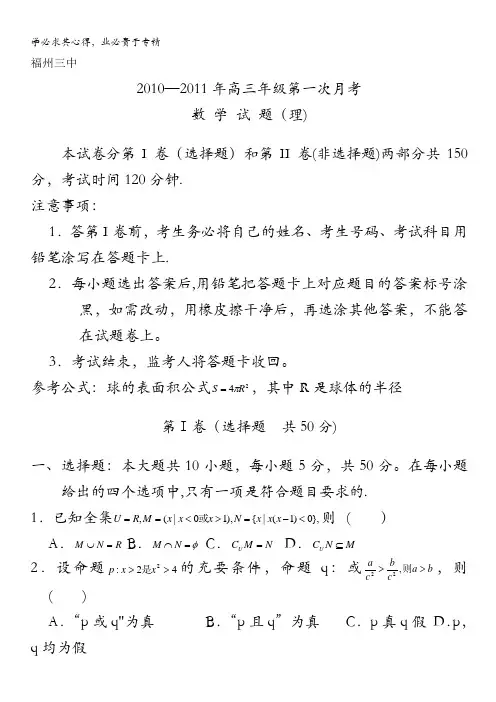 学必求其心得，业必贵于专精
福州三中
2010—2011年高三年级第一次月考
数 学 试 题（理)
本试卷分第I卷（选择题）和第II卷(非选择题)两部分共150
分，考试时间120分钟.
注意事项：
1．答第I卷前，考生务必将自己的姓名、考生号码、考试科目用
铅笔涂写在答题卡上.
2．每小题选出答案后,用铅笔把答题卡上对应题目的答案标号涂
黑，如需改动，用橡皮擦干净后，再选涂其他答案，不能答
在试题卷上。
3．考试结束，监考人将答题卡收回。
参考公式：球的表面积公式S=4πR²，其中R是球体的半径
第Ⅰ卷（选择题 共50分)
一、选择题：本大题共10小题，每小题5分，共50分。在每小题
给出的四个选项中,只有一项是符合题目要求的.
1．已知全集U=R,M=(x|x<0或x>1),N={x|x(x-1)<0},则（ ）
A．M∪N=R B．M∩N=φ C．C_U M=N D．C_U N⊆M
2．设命题p:x>2是x²>4的充要条件，命题q：或a/c²>b/c²,则a>b，则
（ ）
A．“p或q"为真 B．“p且q”为真 C．p真q假 D.p，
q均为假